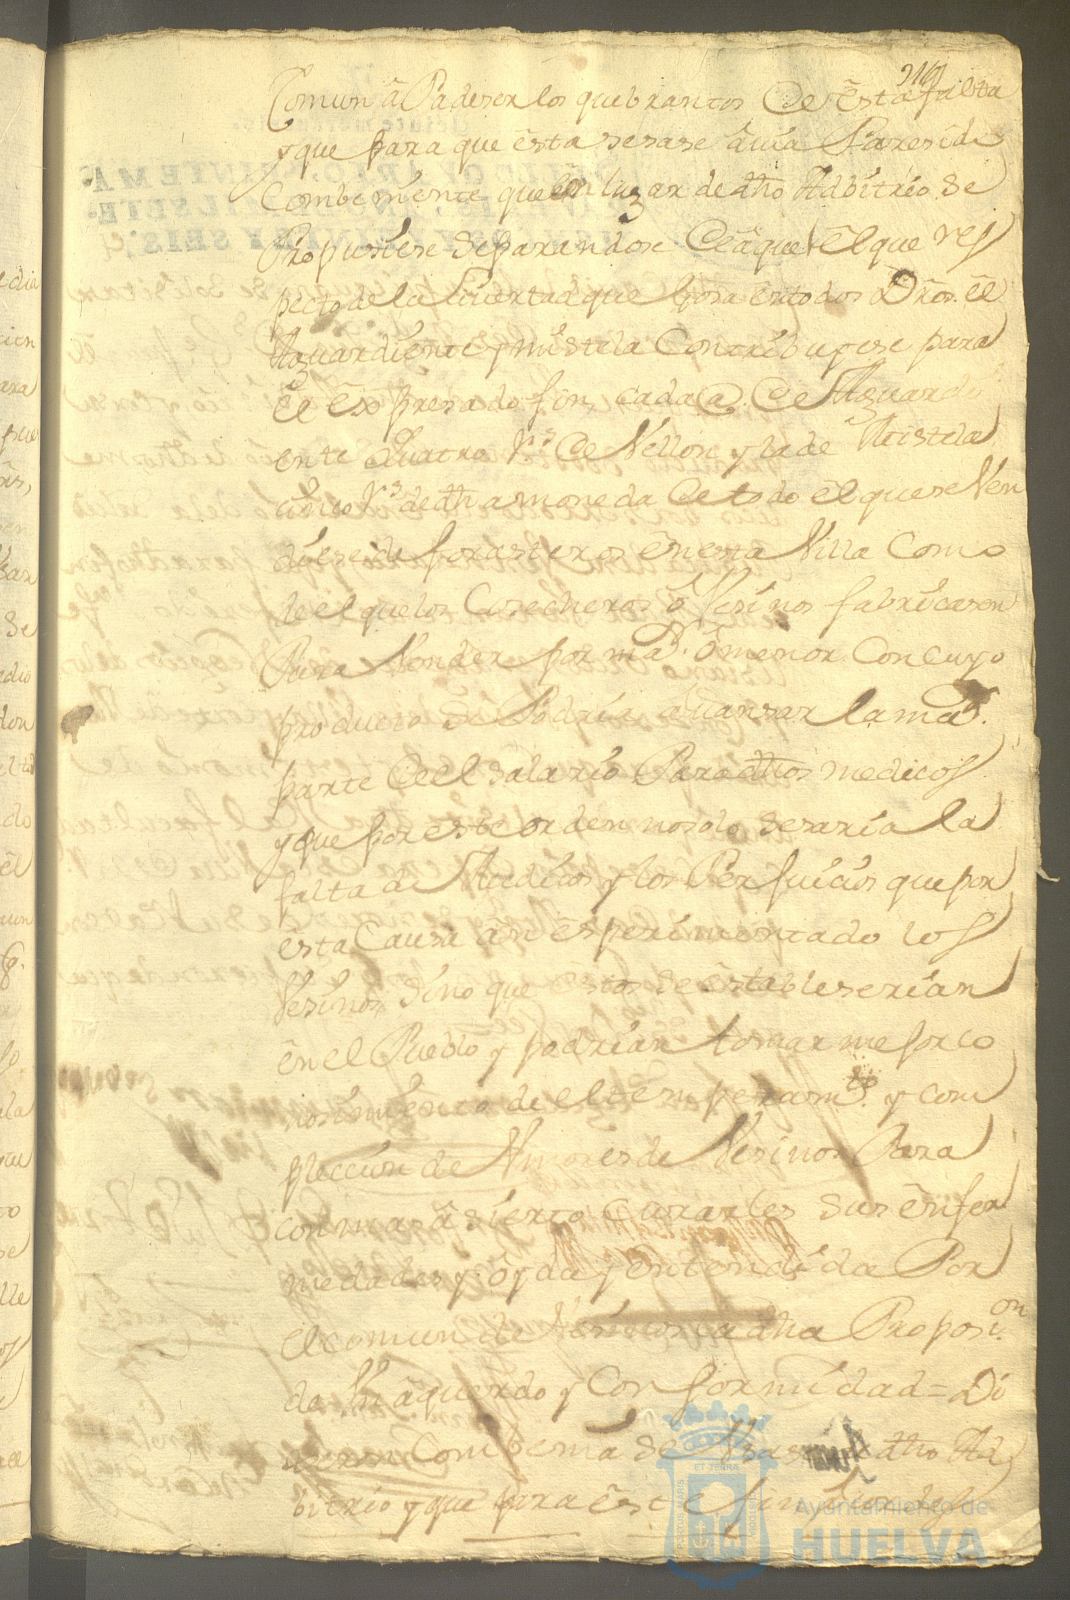 216
Comun â Padeser los quebrantos de êsta falta
y que para que êsta sesase âvia Paresido
Combeniente que en lugar de dho Adbitrio se
Propusiese separandose de âquel êl que res
pecto de la livertad que gosa en todos Dros. êl
Aguardiente y mistela Contribuyese para
êl êxpresado fin, cada @ de Aguardi
ente quatro rs de Vellon y la de Mistela
sinco rs de dha moneda de todo êl que se Ven
diese de forasteros ên esta Villa Como
de el que los Cosecheros ô Vesinos fabricasen
Para Vender por maor. ô menor Con cuyo
producto se Podria abansar la maor.
parte de el salario Para dhos medicos
y que por este orden no solo sesaria la
falta de Medicos y los Perjuicios que por
esta Causa ân êsperimentado los
Vesinos sino que êstos se êstableserian
ên el Pueblo y podrian tomar mejor co
nosimiento de el temperamto. y com
pleccion de Umores de Vesinos Para
con mas âsierto Curarles sus ênfer
medades y ôyda y entendida Por
el comun de Vesinos la dha Proposion.
de Un âquerdo y Conformidad = Di
jeron Combenia se dho Ad
bitrio y que para êste fin
Ayuntamiento de
HUELVA